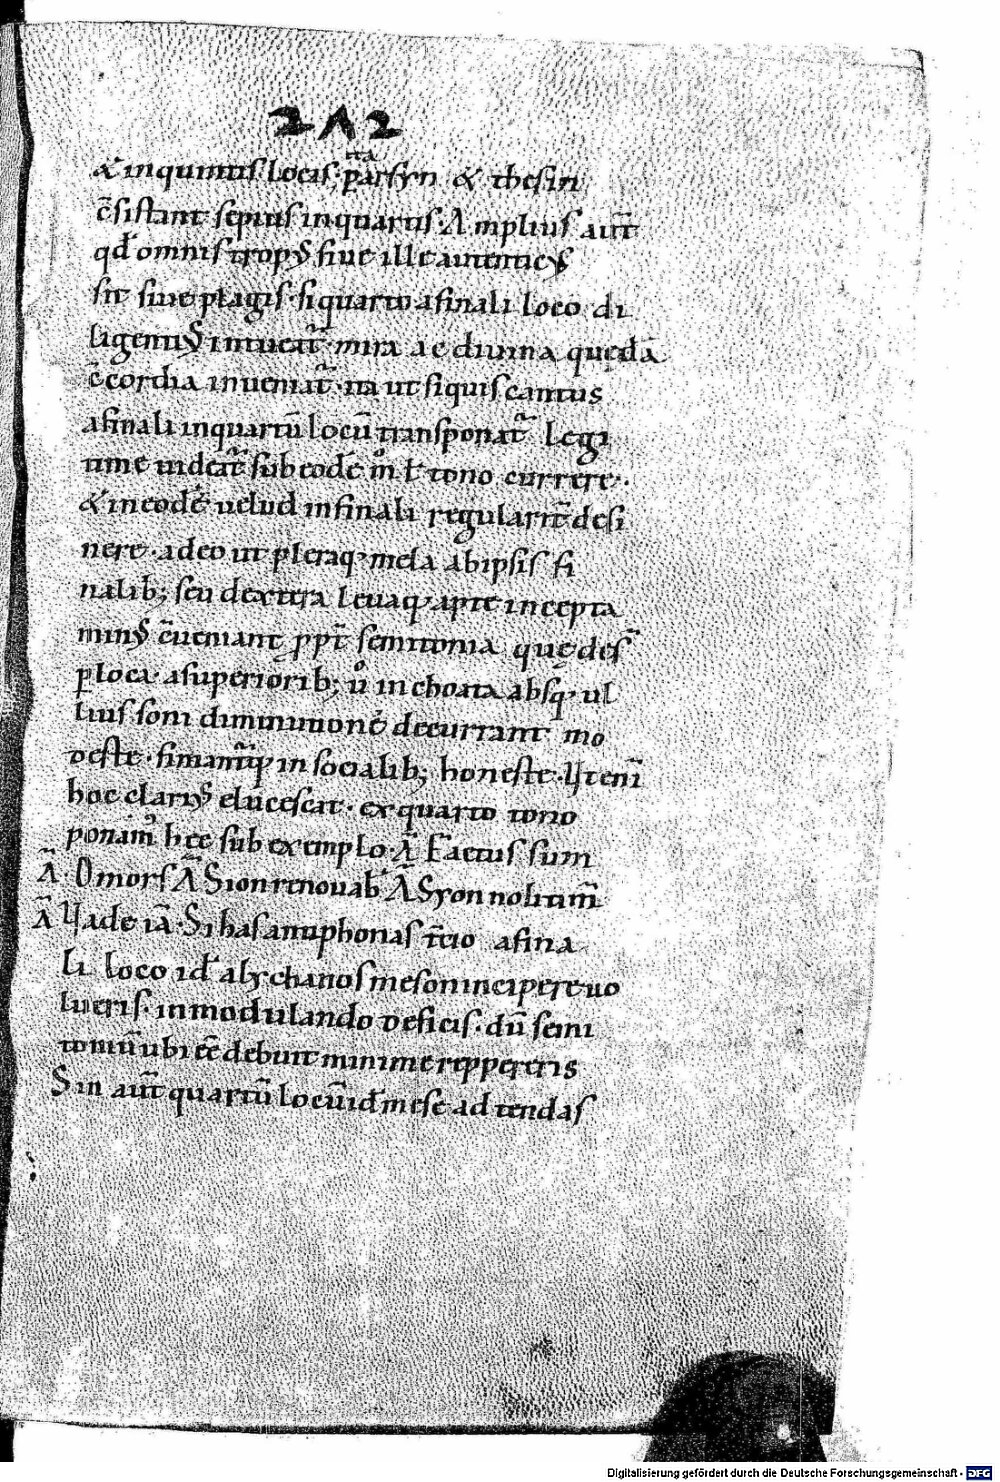 212
& inquintis locis; p arsyn & thesin
ita
c̄sistant sepius inquartis. Amplius aut̄
qd̓ omnis tropꝰ siue ille autenticꝰ
sit siue plagis. si quarto afinali loco di
ligentiꝰ intueat̃. mira ac diuina quędā
c̄cordia inueniat̃. ita ut siquis cantus
afinali inquartū locū transponat̃ legi
time uideat̃ sub eodē m̊ ł tono currere.
& in eodē uelud infinali regularit̄ desi
nere. adeo ut pleraq; mela abipsis fi
nalib; seu dextera leuaq; apte incepta
minꝰ c̄ueniant ꝓpt̄ semitonia quę des̄
ꝑ loca. asuperiorib; ů inchoata absq; ul
lius soni diminutionē decurrant mo
deste. finiant̃q; in socialib; honeste. Ut eni
hoc clariꝰ elucescat. ex quarto tono
ponamꝰ hec sub exemplo. Ā Factus sum
Ā. Omors Ā Sion renouab̓ Ā Syon noli tim̄
Ā Uade iā. Si has antiphonas t̄cio afina
li loco id̓ alychanos meson incipere uo
lueris. inmodulando deficis. dū semi
toniū ubi eē debuit minime reppereris
Sin aut̄ quartū locū id̓ mese adtendas
Digitalisierung gefördert durch die Deutsche Forschungsgemeinschaft - DFG